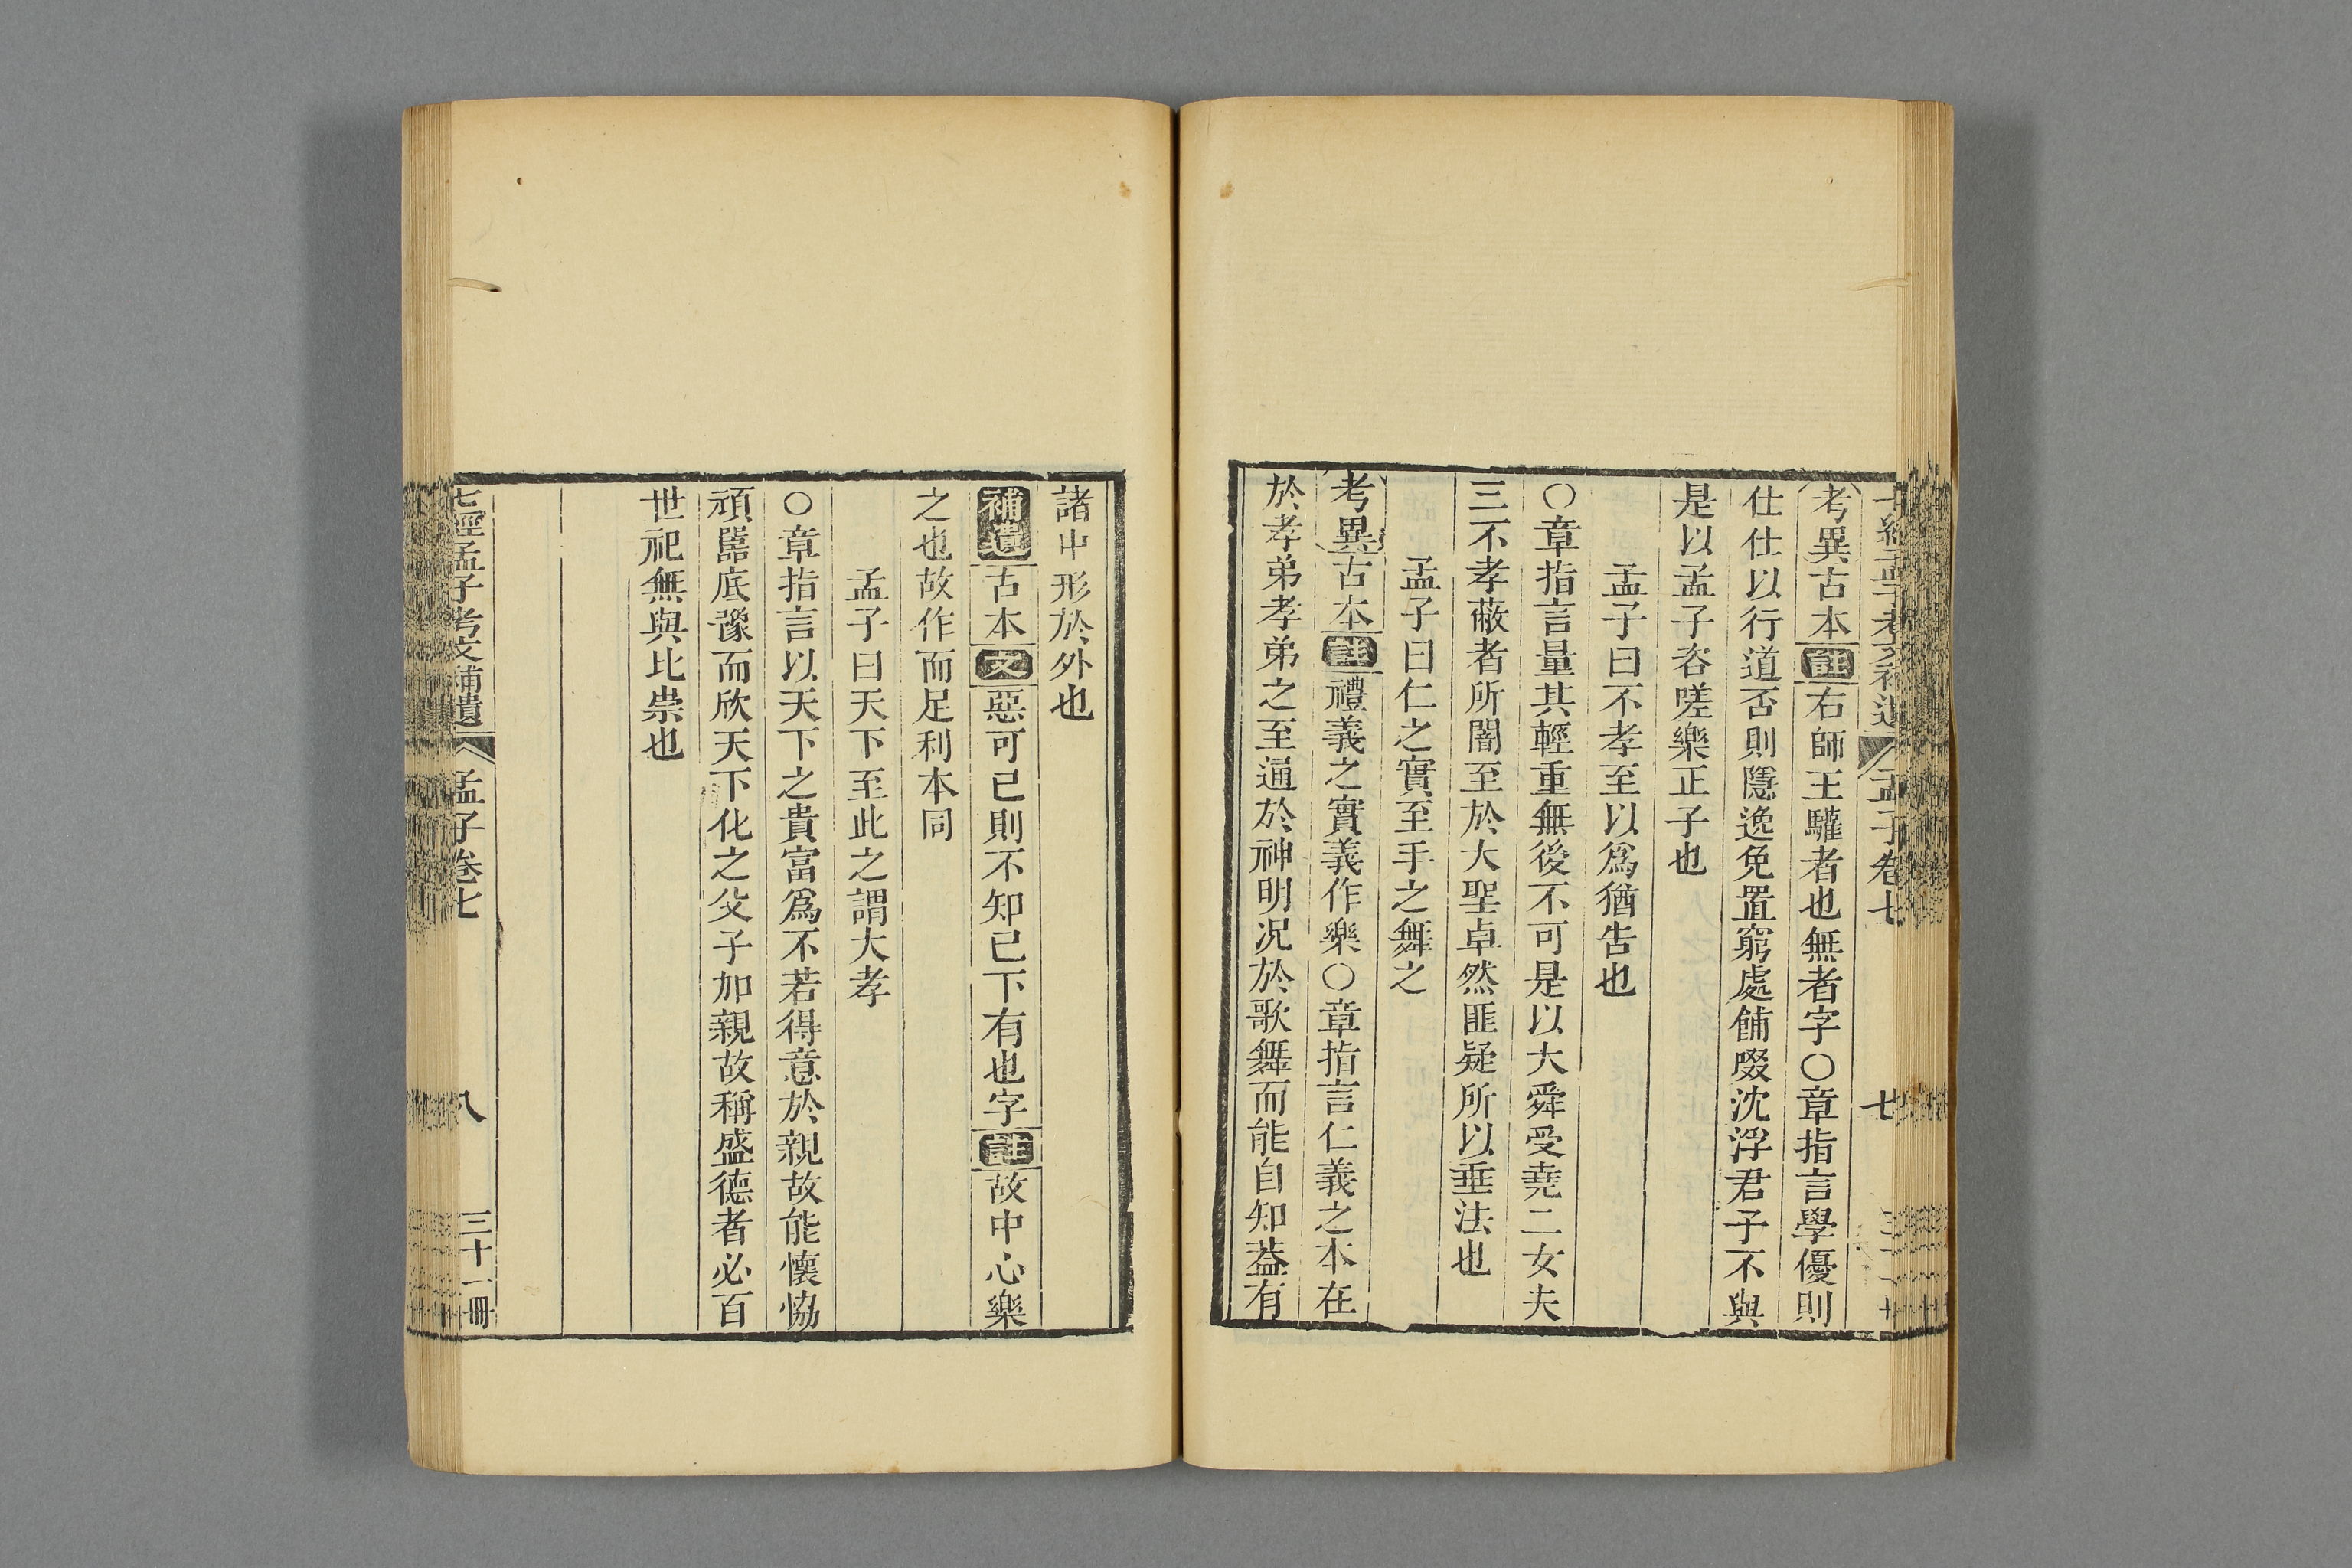 七經孟子考文補遺 孟子卷七 七
考異古本註右師王驩者也無者字○章指言學優則
仕仕以行道否則隱逸免置窮處餔啜沈浮君子不與
是以孟子咨嗟樂正子也
孟子曰不孝至以爲猶告也
○章指言量其輕重無後不可是以大舜受堯二女夫
三不孝蔽者所闇至於大聖卓然匪疑所以垂法也
孟子曰仁之實至手之舞之
考異古本註禮義之實義作樂○章指言仁義之本在
於孝弟孝弟之至通於神明况於歌舞而能自知葢有
諸中形於外也
補遺古本文惡可已則不知已下有也字註故中心樂
之也故作而足利本同
孟子曰天下至此之謂大孝
○章指言以天下之貴富爲不若得意於親故能懷恊
頑嚚底豫而欣天下化之父子加親故稱盛德者必百
世祀無與比崇也
七經孟子考文補遺 孟子卷七 八 三十一冊